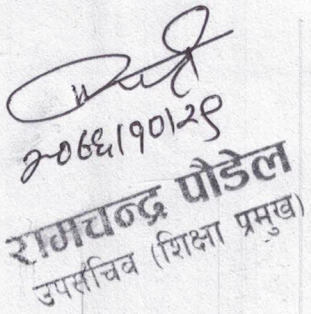 २०७६।१०।२९
रामचन्द्र पौडेल
उपसचिव (शिक्षा प्रमुख)